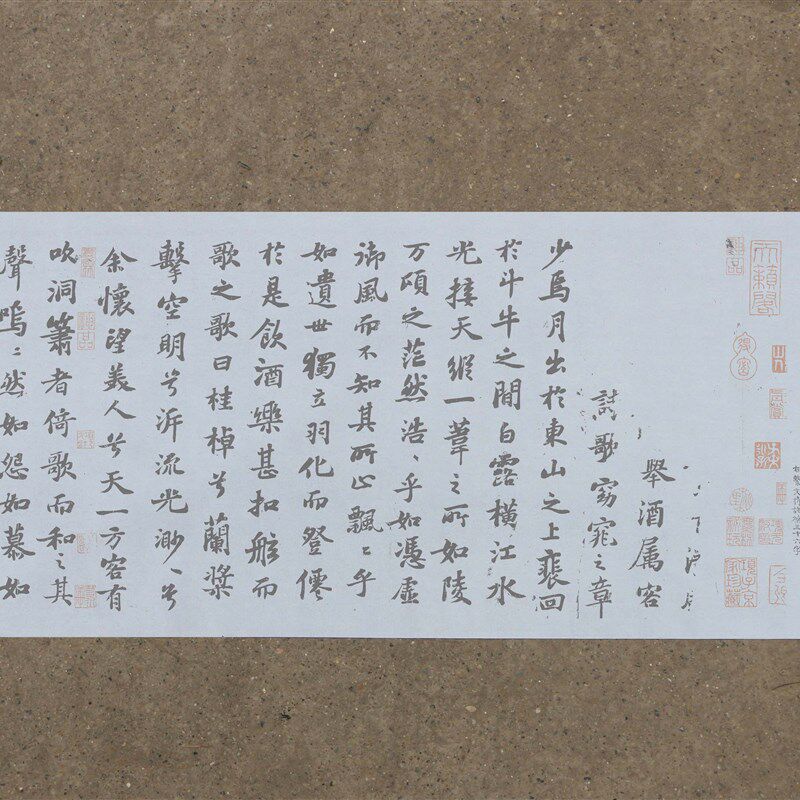 天籟閣
舉酒属客
詩歌窈窕之章
少焉月出於東山之上裵回
於斗牛之間白露横江水
光接天縱一葦之所如陵
万頃之茫然浩〻乎如憑虚
御風而不知其所止飄〻乎
如遺世獨立羽化而登僊
於是飲酒樂甚扣舷而
歌之歌曰桂棹兮蘭槳
擊空明兮泝流光渺〻兮
余懷望美人兮天一方客有
吹洞簫者倚歌而和之其
聲嗚〻然如怨如慕如